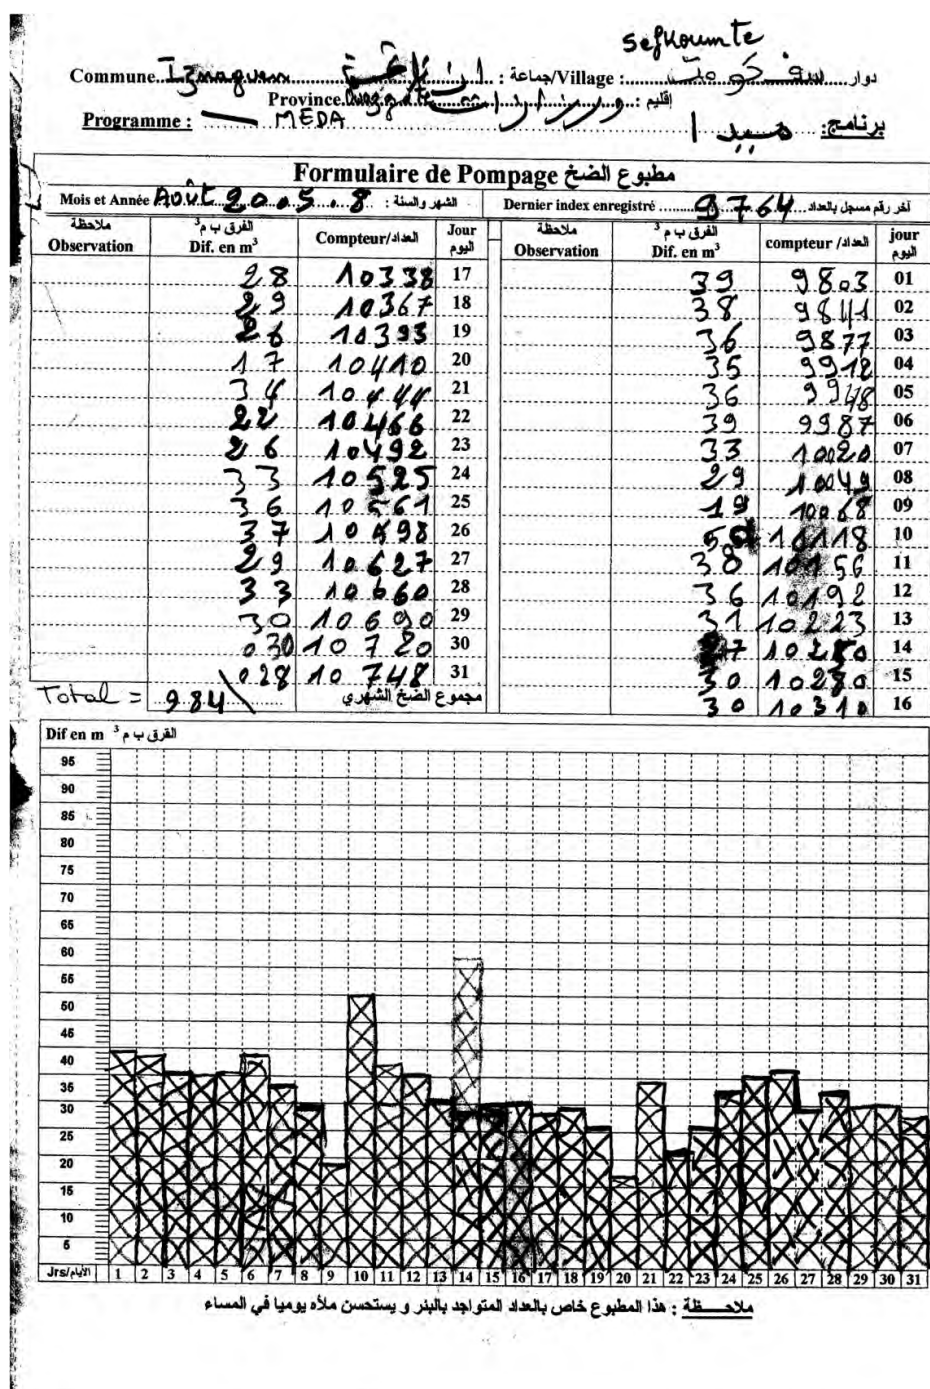 sefkoumte
Commune Iznaguen : جماعة/Village : سفكومت دوار
Province Ouarzazate : إقليم ورزازات
Programme : MEDA ميدا برنامج:
Formulaire de Pompage مطبوع الضخ
Mois et Année Août 2005.8 : الشهر والسنة Dernier index enregistré 9764 آخر رقم مسجل بالعداد
ملاحظة الفرق ب م³ Jour ملاحظة الفرق ب م³ jour
Observation Dif. en m³ Compteur/العداد اليوم Observation Dif. en m³ compteur /العداد اليوم
28 10338 17 39 9803 01
29 10367 18 38 9841 02
26 10393 19 36 9877 03
17 10410 20 35 9912 04
34 10444 21 36 9948 05
22 10466 22 39 9987 06
26 10492 23 33 10020 07
33 10525 24 29 10049 08
36 10561 25 19 10068 09
37 10598 26 50 10118 10
29 10627 27 38 10156 11
33 10660 28 36 10192 12
30 10690 29 31 10223 13
030 10720 30 27 10250 14
028 10748 31 30 10280 15
Total = 984 مجموع الضخ الشهري 30 10310 16
Dif en m ³ الفرق ب م
95
90
85
80
75
70
65
60
55
50
45
40
35
30
25
20
15
10
5
Jrs/الأيام 1 2 3 4 5 6 7 8 9 10 11 12 13 14 15 16 17 18 19 20 21 22 23 24 25 26 27 28 29 30 31
ملاحـــظة : هذا المطبوع خاص بالعداد المتواجد بالبئر و يستحسن ملأه يوميا في المساء